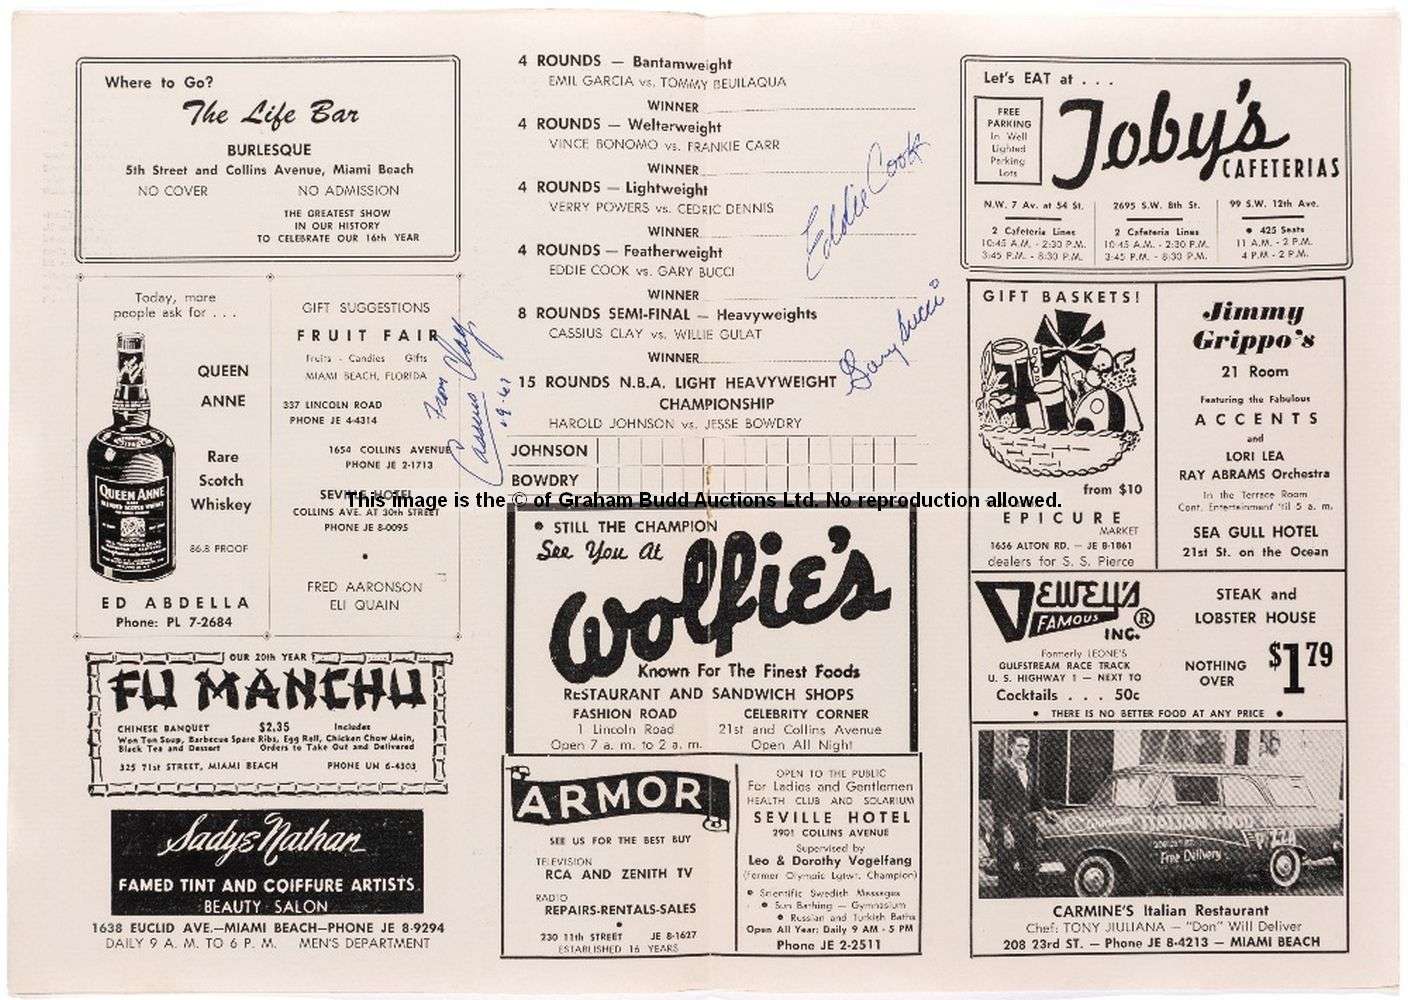 Where to Go?
The Life Bar
BURLESQUE
5th Street and Collins Avenue, Miami Beach
NO COVER NO ADMISSION
THE GREATEST SHOW
IN OUR HISTORY
TO CELEBRATE OUR 16th YEAR
Today, more
people ask for . . .
QUEEN
ANNE
Rare
Scotch
Whiskey
86.8 PROOF
QUEEN ANNE
ED ABDELLA
Phone: PL 7-2684
GIFT SUGGESTIONS
FRUIT FAIR
Fruits - Candies Gifts
MIAMI BEACH, FLORIDA
337 LINCOLN ROAD
PHONE JE 4-4314
1654 COLLINS AVENUE
PHONE JE 2-1713
SEVILLE HOTEL
COLLINS AVE. AT 30th STREET
PHONE JE 8-0095
•
FRED AARONSON
ELI QUAIN
OUR 20th YEAR
FU MANCHU
CHINESE BANQUET $2.35 Includes
Won Ton Soup, Barbecue Spare Ribs, Egg Roll, Chicken Chow Mein,
Black Tea and Dessert Orders to Take Out and Delivered
325 71st STREET, MIAMI BEACH PHONE UN 6-4303
Sady & Nathan
FAMED TINT AND COIFFURE ARTISTS
BEAUTY SALON
1638 EUCLID AVE.—MIAMI BEACH—PHONE JE 8-9294
DAILY 9 A. M. TO 6 P. M. MEN'S DEPARTMENT
4 ROUNDS — Bantamweight
EMIL GARCIA vs. TOMMY BEUILAQUA
WINNER
4 ROUNDS — Welterweight
VINCE BONOMO vs. FRANKIE CARR
WINNER
4 ROUNDS — Lightweight
VERRY POWERS vs. CEDRIC DENNIS
WINNER
4 ROUNDS — Featherweight
EDDIE COOK vs. GARY BUCCI
WINNER
8 ROUNDS SEMI-FINAL — Heavyweights
CASSIUS CLAY vs. WILLIE GULAT
WINNER
15 ROUNDS N.B.A. LIGHT HEAVYWEIGHT
CHAMPIONSHIP
HAROLD JOHNSON vs. JESSE BOWDRY
JOHNSON
BOWDRY
Eddie Cook
Gary Bucci
From
Cassius Clay
This image is the © of Graham Budd Auctions Ltd. No reproduction allowed.
• STILL THE CHAMPION
See You At
Wolfie's
Known For The Finest Foods
RESTAURANT AND SANDWICH SHOPS
FASHION ROAD CELEBRITY CORNER
1 Lincoln Road 21st and Collins Avenue
Open 7 a. m. to 2 a. m. Open All Night
ARMOR
SEE US FOR THE BEST BUY
TELEVISION
RCA AND ZENITH TV
RADIO
REPAIRS-RENTALS-SALES
•
230 11th STREET JE 8-1627
ESTABLISHED 16 YEARS
OPEN TO THE PUBLIC
For Ladies and Gentlemen
HEALTH CLUB AND SOLARIUM
SEVILLE HOTEL
2901 COLLINS AVENUE
Supervised by
Leo & Dorothy Vogelfang
(former Olympic Lgtwt. Champion)
• Scientific Swedish Massages
• Sun Bathing — Gymnasium
• Russian and Turkish Baths
Open All Year: Daily 9 AM - 5 PM
Phone JE 2-2511
Let's EAT at . . .
FREE
PARKING
In Well
Lighted
Parking
Lots
Toby's
CAFETERIAS
N.W. 7 Av. at 54 St.
2 Cafeteria Lines
10:45 A.M. - 2:30 P.M.
3:45 P.M. - 8:30 P.M.
2695 S.W. 8th St.
2 Cafeteria Lines
10:45 A.M. - 2:30 P.M.
3:45 P.M. - 8:30 P.M.
99 S.W. 12th Ave.
• 425 Seats
11 A.M. - 2 P.M.
4 P.M - 2 P.M.
GIFT BASKETS!
from $10
EPICURE
MARKET
1656 ALTON RD. — JE 8-1861
dealers for S. S. Pierce
Jimmy
Grippo's
21 Room
Featuring the Fabulous
ACCENTS
and
LORI LEA
RAY ABRAMS Orchestra
In the Terrace Room
Cont. Entertainment 'til 5 a. m.
SEA GULL HOTEL
21st St. on the Ocean
DEWEY'S
FAMOUS
INC. ®
Formerly LEONE'S
GULFSTREAM RACE TRACK
U. S. HIGHWAY 1 — NEXT TO
Cocktails . . . 50c
STEAK and
LOBSTER HOUSE
NOTHING
OVER
$1 79
• THERE IS NO BETTER FOOD AT ANY PRICE •
ITALIAN FOOD
PIZZA
Free Delivery
CARMINE'S Italian Restaurant
Chef: TONY JIULIANA — "Don" Will Deliver
208 23rd ST. — Phone JE 8-4213 — MIAMI BEACH